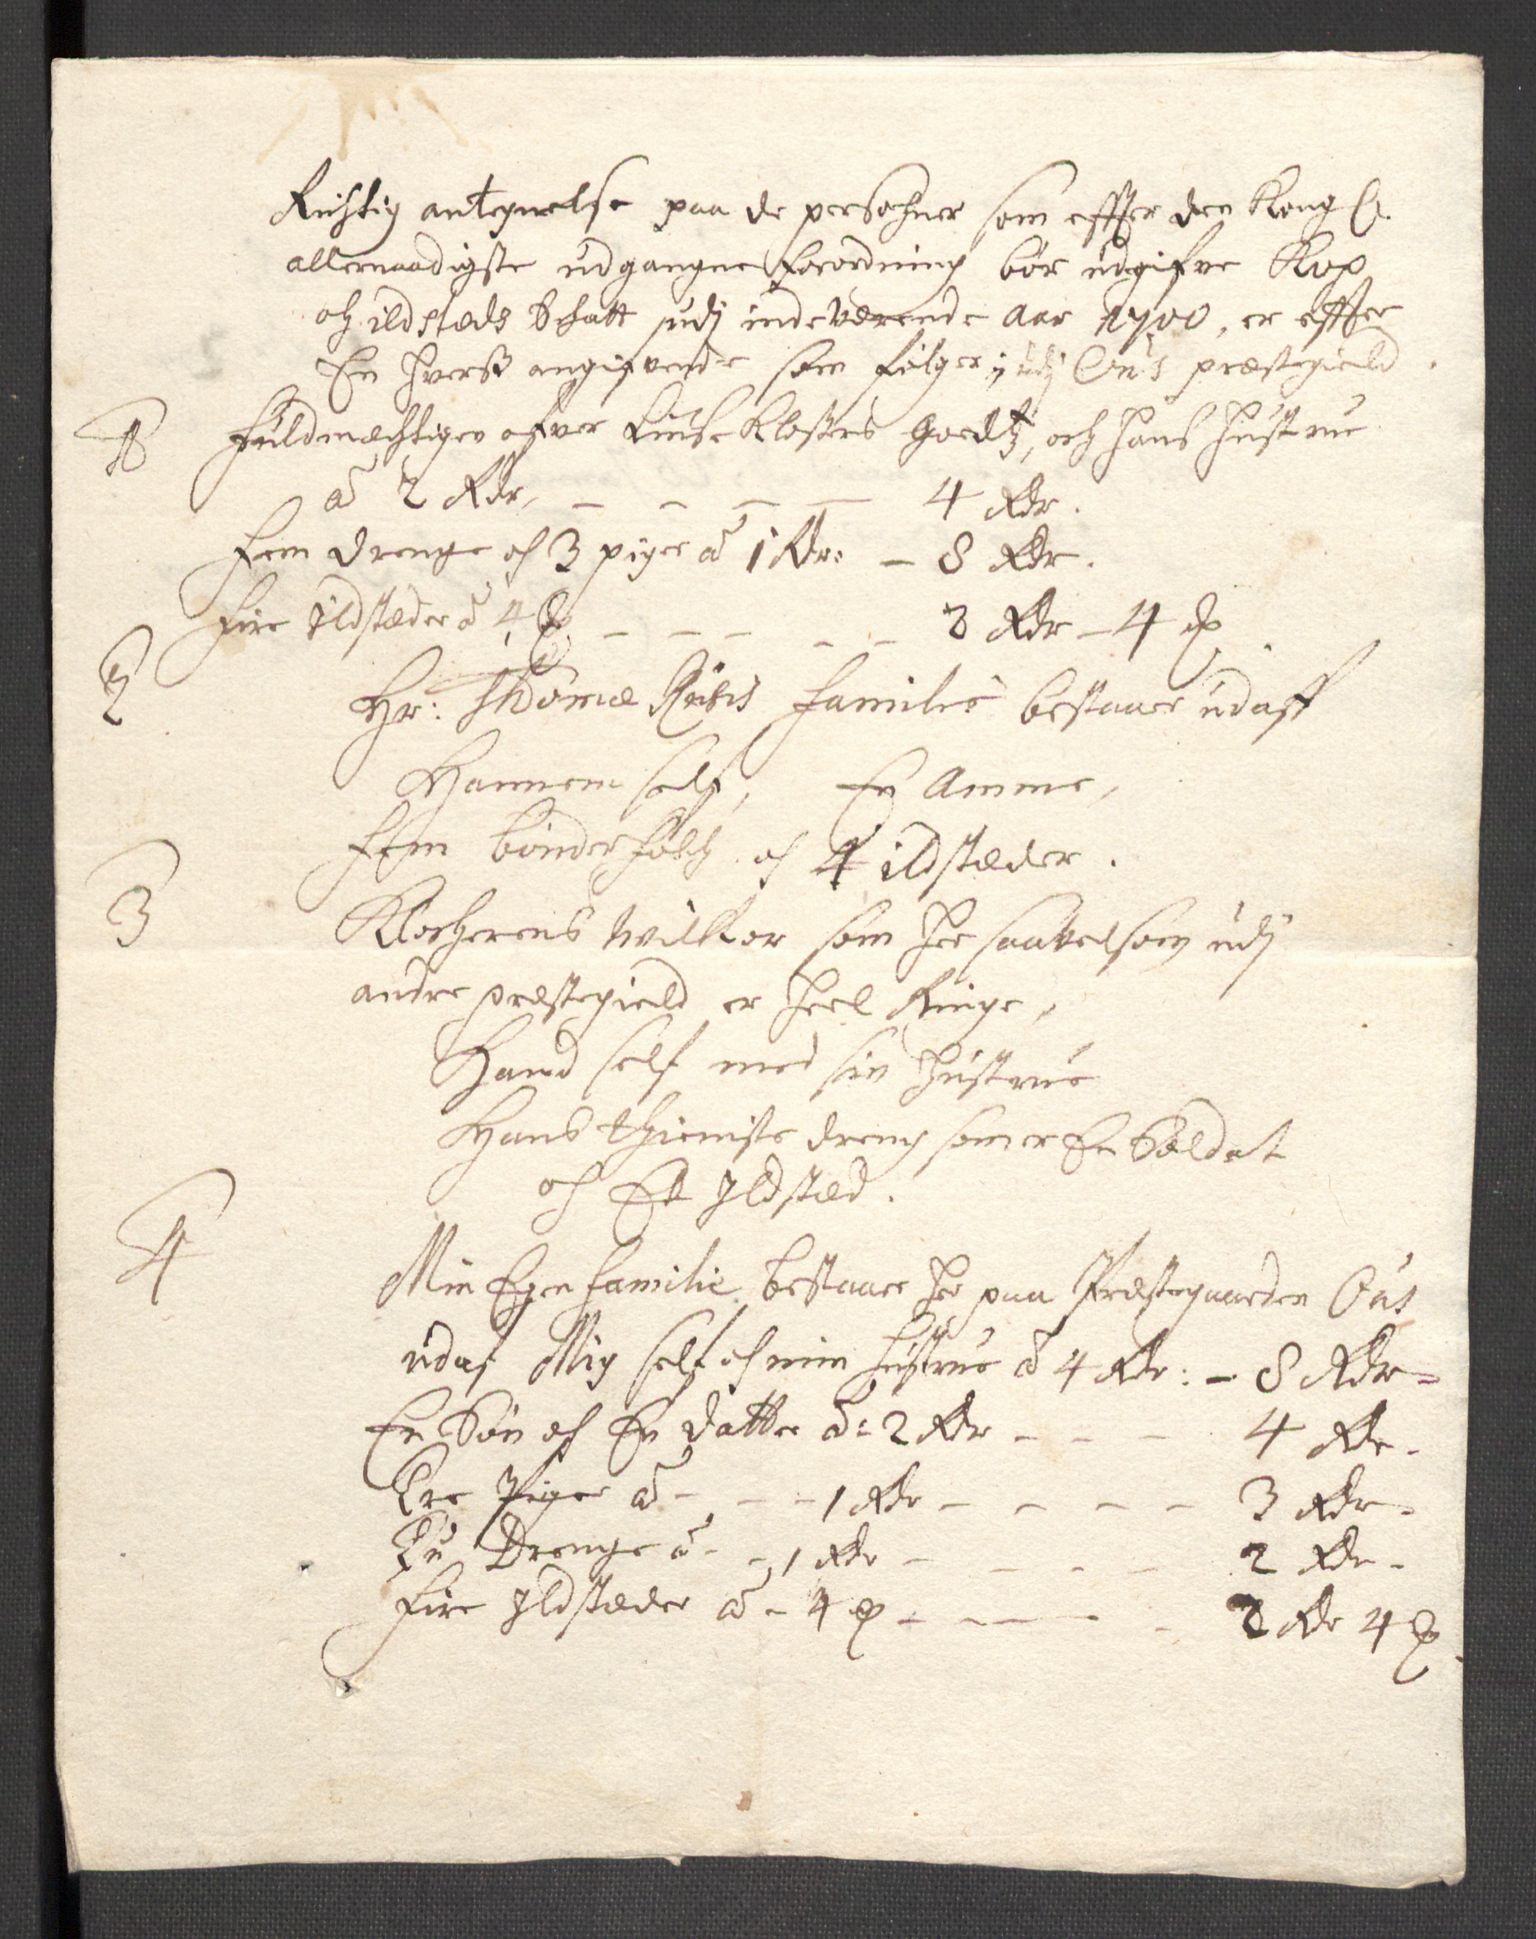 Richtig antegnelse paa de persohner som effter den Kong l.
allernaadigste udgangne forordning bør udgifve Kop
och ildstæds Schatt udj indeværende Aar 1700, er effter
En hverß angifvende som følger i udj Ous præstegield.
1 Fuldmechtigen ofver Liuse Klosters Goedtz, och hans hustrue
a 2 Rdr, – – – – 4 Rdr.
Fem drenge oh 3 piger a 1 Rdr: – 8 Rdr.
Fire Ildstæder a 4 – – – – – 2 Rdr – 4
2 Hr: Thomæ familie bestaaer udaff
Hannem self, En Amme,
Fem bønderfolch oh 4 ildstæder.
3 Klocherens wilkor som her saavelsom udj
andre præstegield er heel Ringe,
Hand self med sin hustrue
Hans thieniste dreng som er En Soldat
oh Et Ildstæd.
4 Min Egen familie bestaaer her paa Præstegaarden Ous
udaf Mig self oh min hustrue a 4 Rdr: – 8 Rdr –
En Søn oh En datter a: 2 Rdr – – – 4 Rdr –
Tre Piger a – – – 1 Rdr – – – – 3 Rdr –
Tu Drenge a – – 1 Rdr – – – – 2 Rdr –
Fire Ildstæder a – 4 – – – – 2 Rdr 4